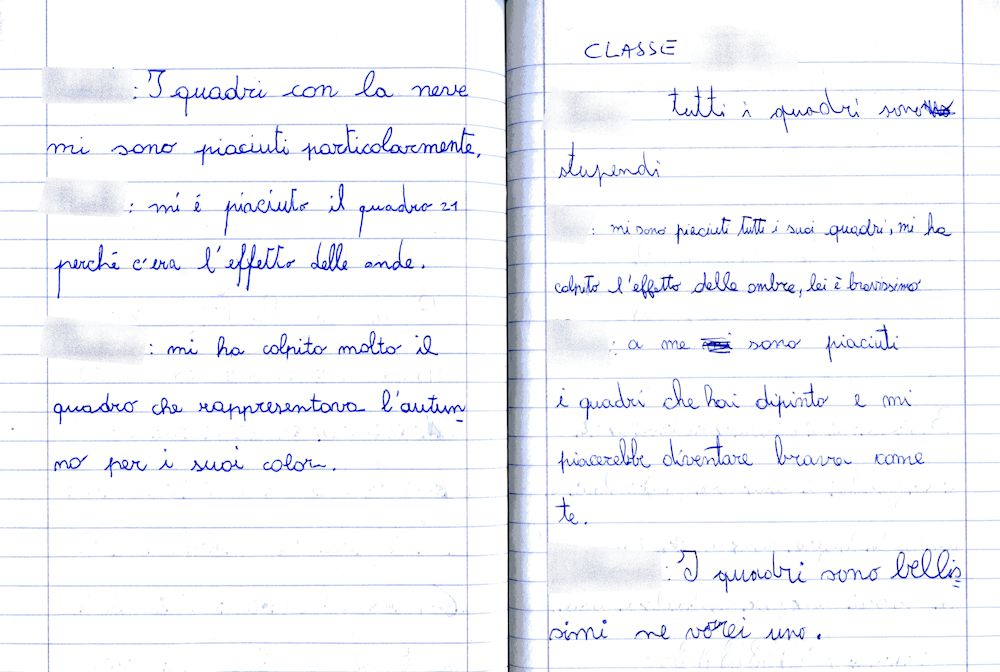 : I quadri con la neve
mi sono piaciuti particolarmente.
: mi é piaciuto il quadro 21
perché c'era l'effetto delle onde.
: mi ha colpito molto il
quadro che rappresentava l'autun
no per i suoi colori.
CLASSE
tutti i quadri sono
stupendi
: mi sono piaciuti tutti i suoi quadri, mi ha
colpito l'effetto delle ombre, lei è bravissimo
: a me sono piaciuti
i quadri che hai dipinto e mi
piacerebbe diventare brava come
te.
: I quadri sono bellis
simi ne vorei uno.